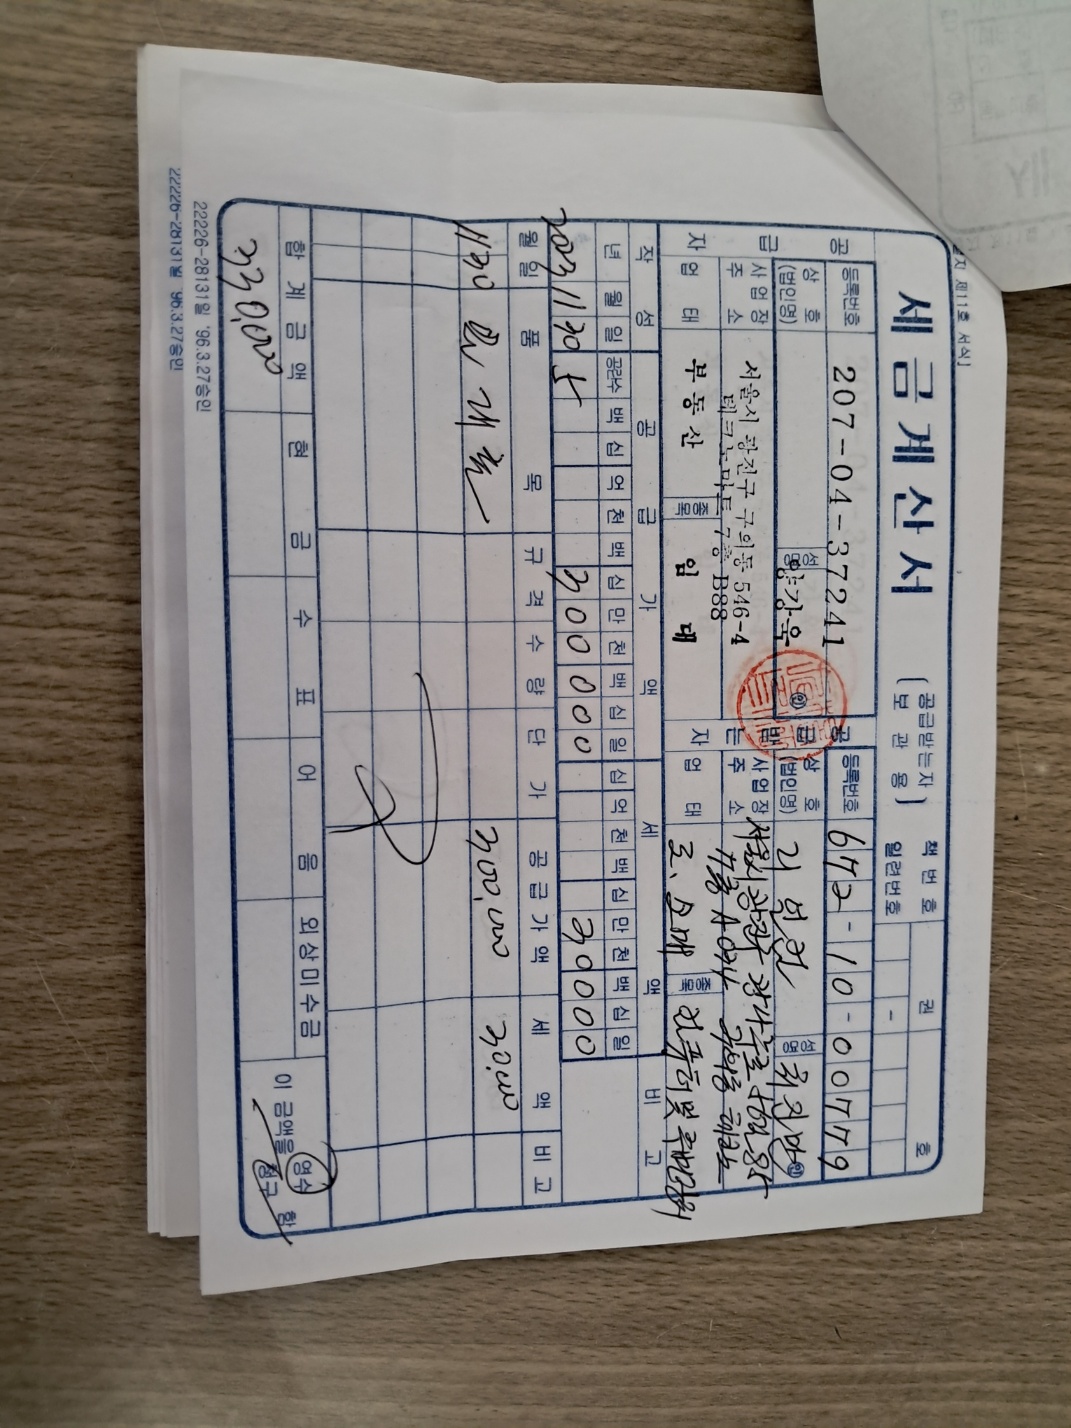 지 제11호 서식]
세금계산서 (공급받는자 보관용) 책번호 권 호
일련번호 -
공급자 등록번호 207-04-37241
상호 (법인명) 성명 양강옥 ㊞
사업장 주소 서울시 광진구 구의동 546-4
테크노마트 7층 B88
업태 부동산 종목 임대
공급받는자 등록번호 672-10-00779
상호 (법인명) 성명 ㊞
사업장 주소
업태 도.소매 종목
작성 공급가액 세액 비고
년 월 일 공란수 백 십 억 천 백 십 만 천 백 십 일 십 억 천 백 십 만 천 백 십 일
2023 11 30 5 300000 30000
월 일 품목 규격 수량 단가 공급가액 세액 비고
11 30 300,000 30,000
합계금액 현금 수표 어음 외상미수금 이 금액을 영수 청구 함
330,000
22226-28131일 '96.3.27승인
22226-28131일 '96.3.27승인